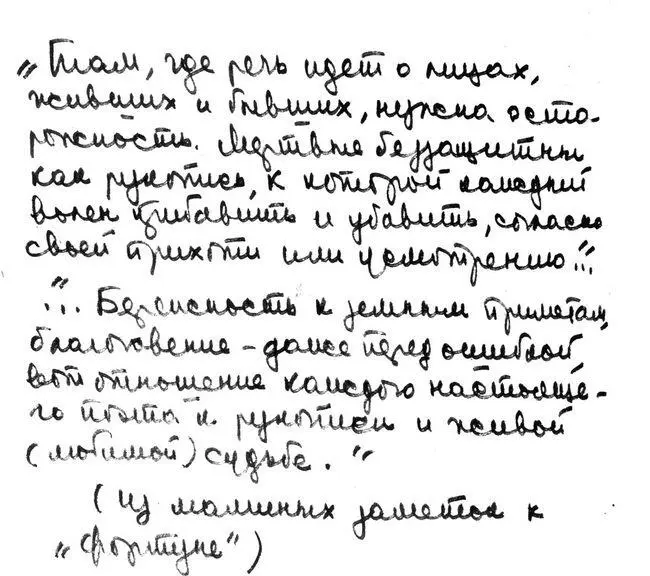 „Там, где речь идет о лицах,
живших и бывших, нужна осто-
рожность. Мертвые беззащитны
как рукопись, к которой каждый
волен прибавить и убавить, согласно
своей прихоти или усмотрению..."
"... Бережность к земным приметам,
благоговение – даже перед ошибкой,
вот отношение каждого настояще-
го поэта к рукописи и живой
(любимой) судьбе."
(из маминых заметок к
„Фортуне")